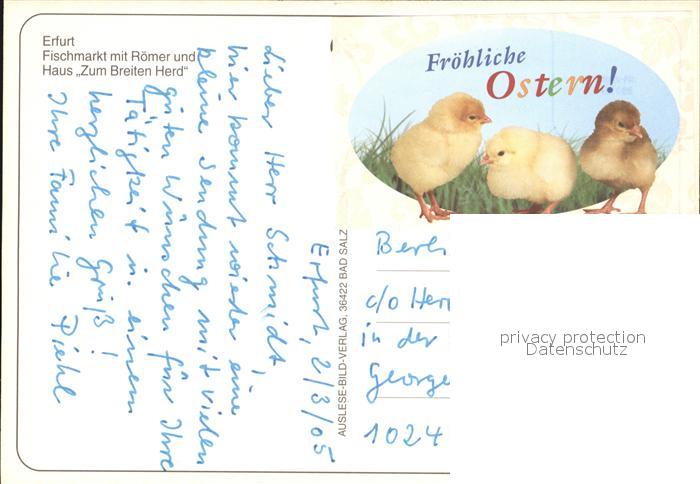 Erfurt
Fischmarkt mit Römer und
Haus „Zum Breiten Herd“
Fröhliche
Ostern!
Erfurt, 2/3/05
Lieber Herr Schmidt,
hier kommt wieder eine
kleine Sendung mit vielen
guten Wünschen für Ihre
Tätigkeit u. einem
herzlichen Gruß!
Ihre Familie Piehl
AUSLESE-BILD-VERLAG, 36422 BAD SALZ
c/o
in der
1024
privacy protection
Datenschutz